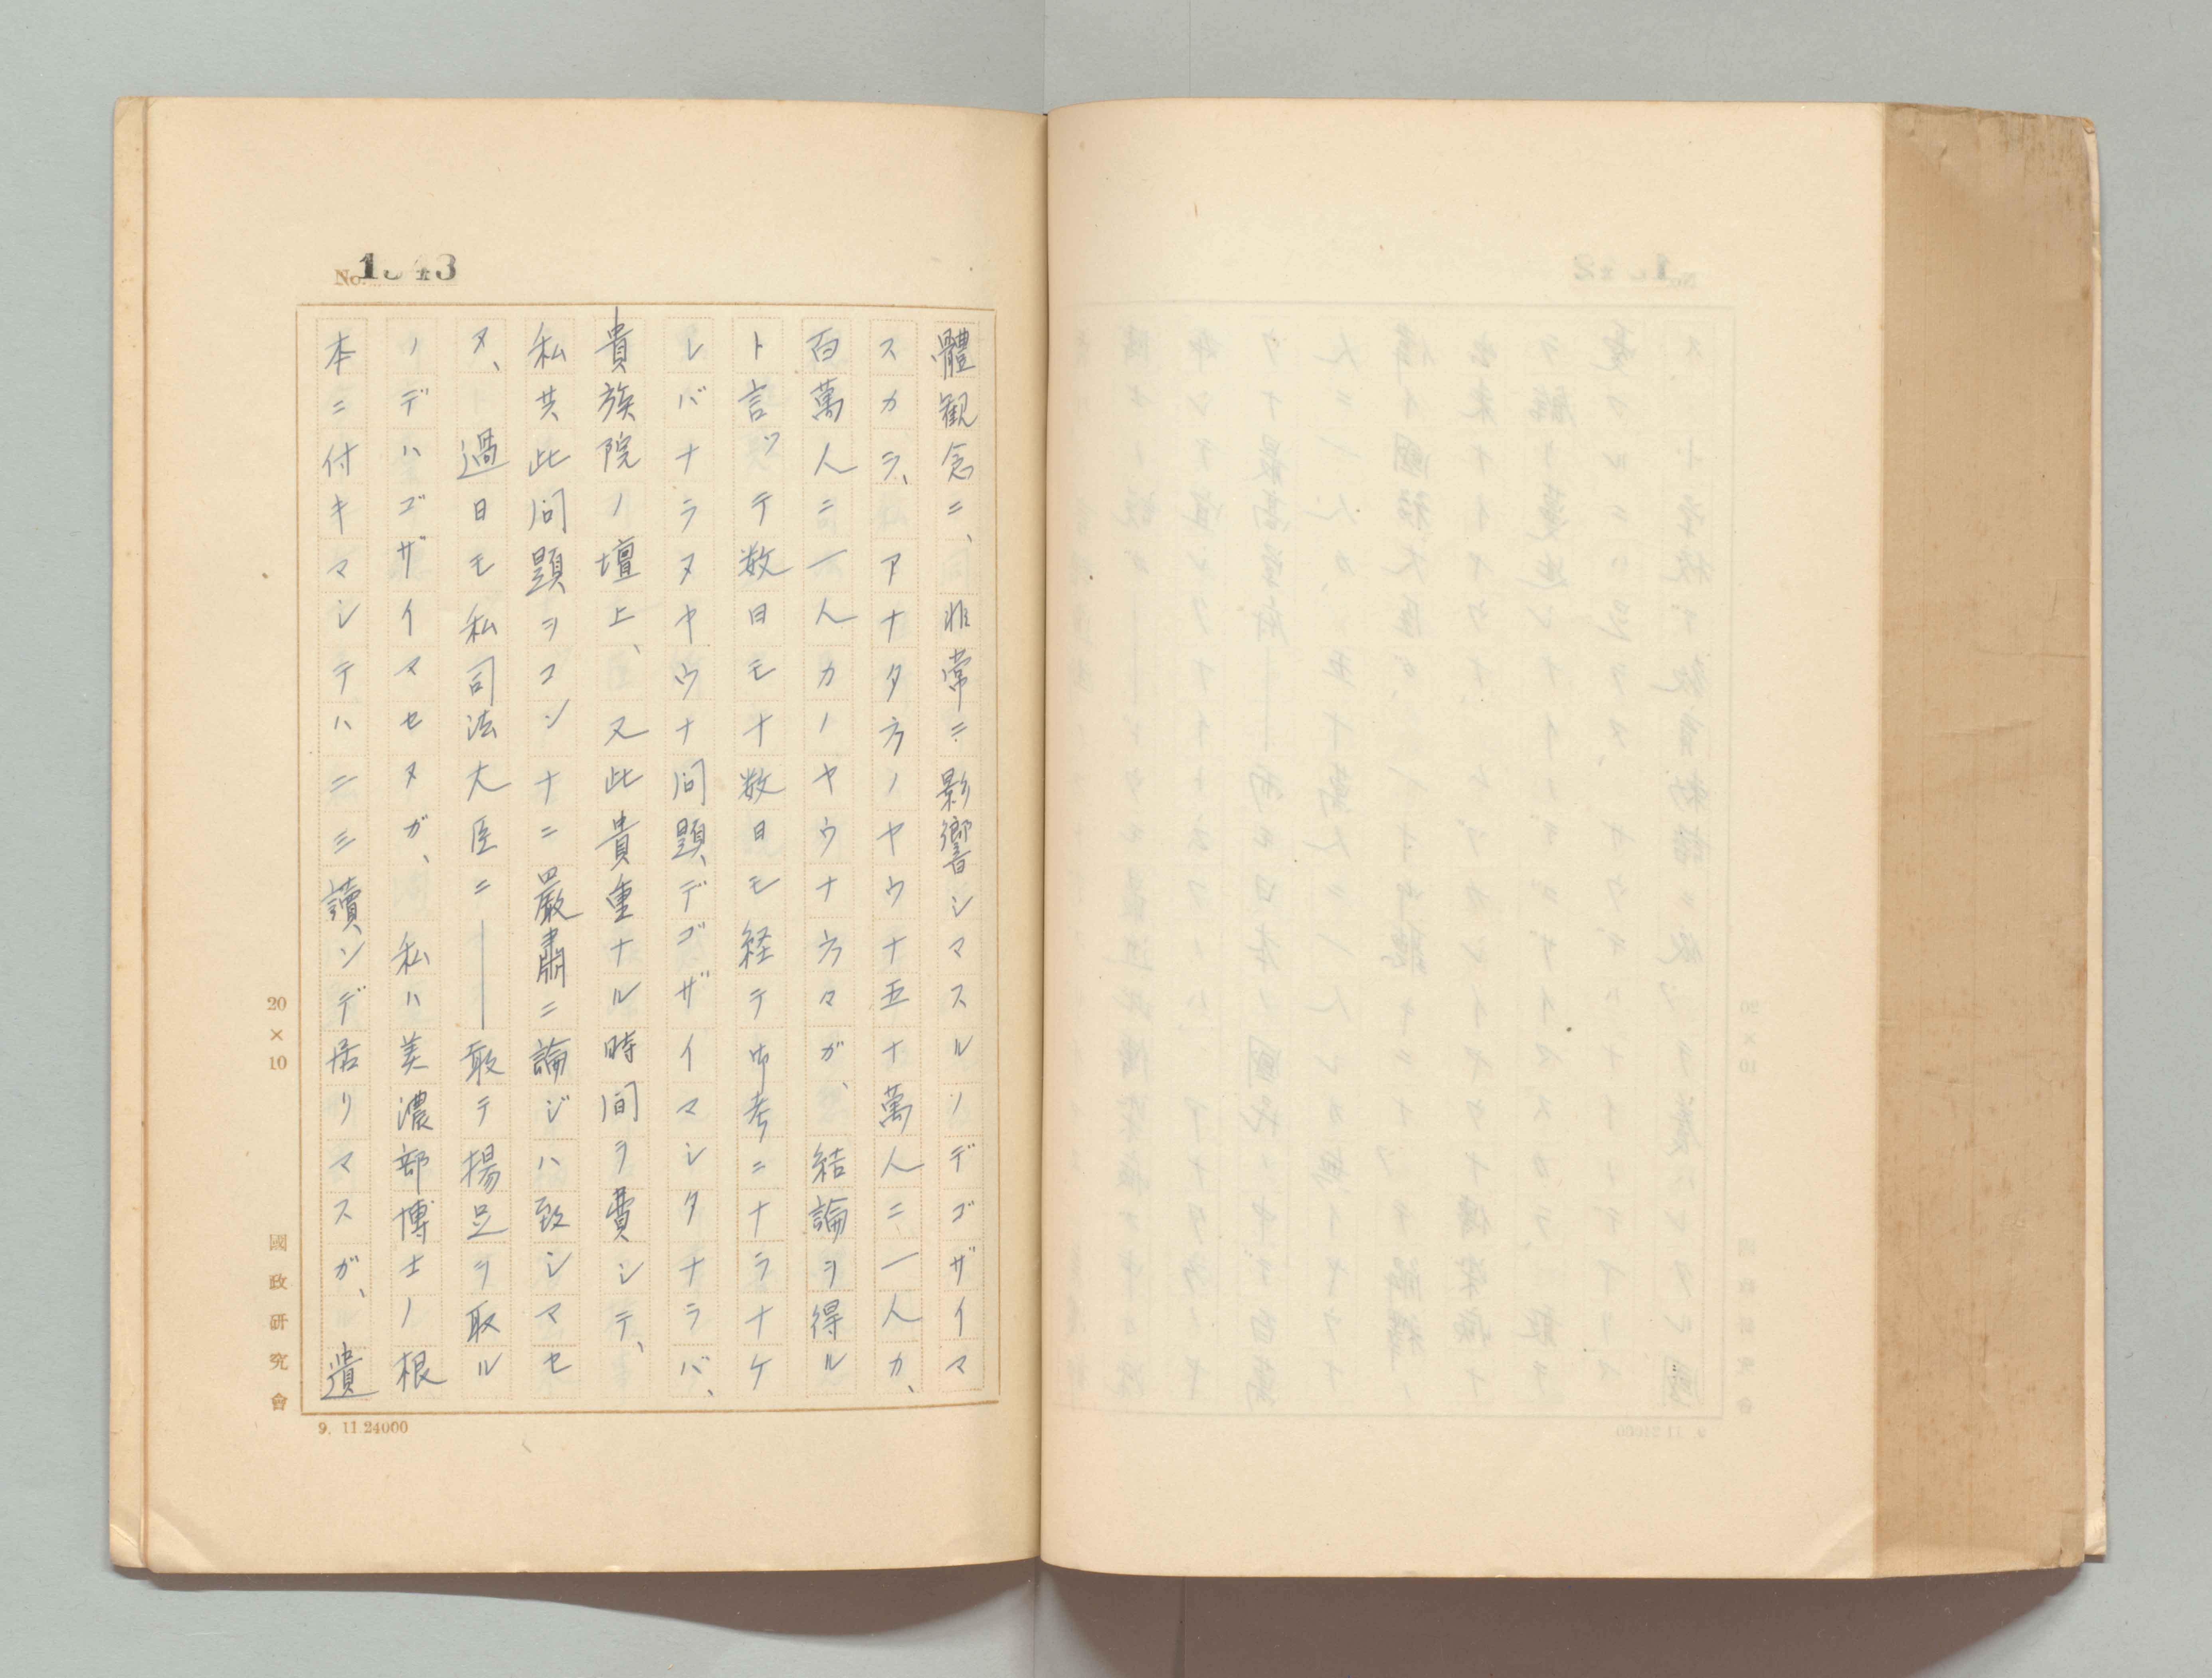 No. 1343
體観念ニ、非常ニ影響シマスルノデゴザイマ
スカラ、アナタ方ノヤウナ五十萬人ニ一人カ、
百萬人ニ一人カノヤウナ方々ガ、結論ヲ得ル
ト言ッテ数日モ十数日モ経テ御考ニナラナケ
レバナラヌヤウナ問題デゴザイマシタナラバ、
貴族院ノ壇上、又此貴重ナル時間ヲ費シテ、
私共此問題ヲコンナニ嚴肅ニ論ジハ致シマセ
ヌ、過日モ私司法大臣ニ――敢テ揚足ヲ取ル
ノデハゴザイマセヌガ、私ハ美濃部博士ノ根
本ニ付キマシテハ二三讀ンデ居リマスガ、遺
20×10
國政研究會
9. 11.24000